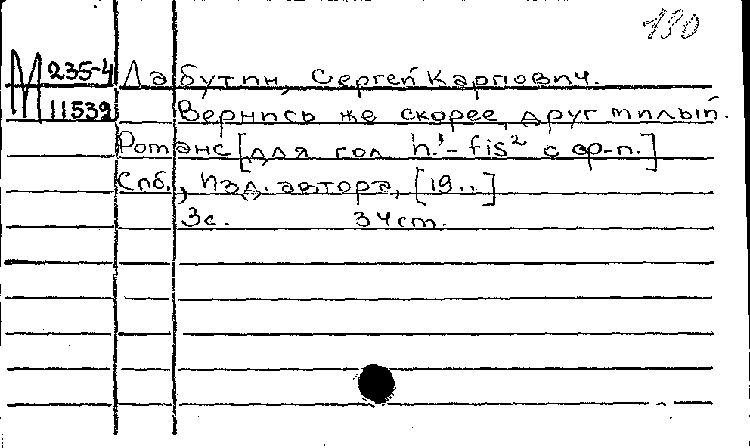 190
М 235-4 Лабутин, Сергей Карпович.
11539 Вернись же скорее, друг милый.
Романс [для гол h.¹ - fis² с ф-п.]
Спб., Изд. автора, [19..]
3 с. 34 cm.